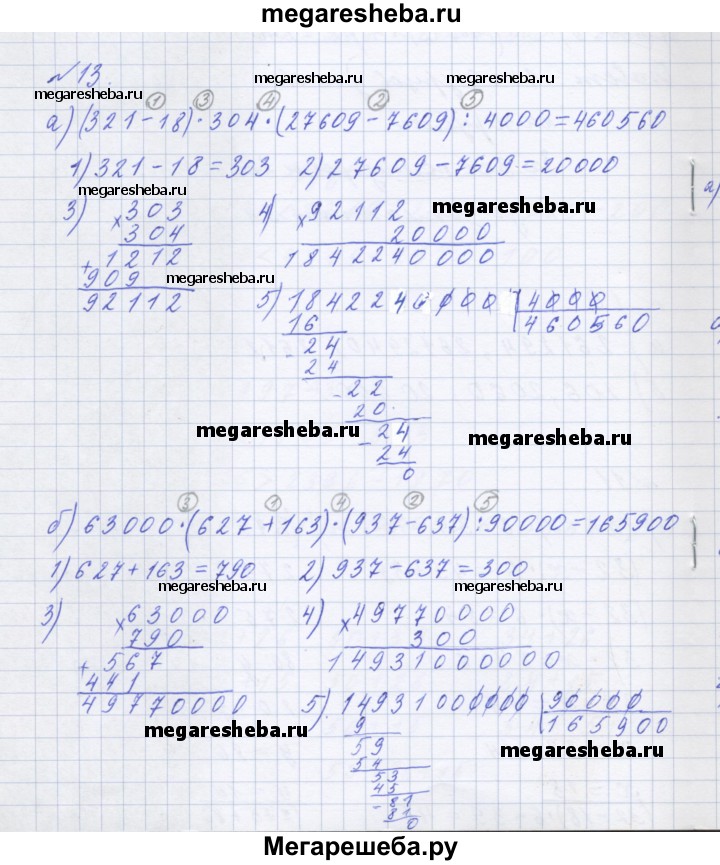 megaresheba.ru
№ 13.
megaresheba.ru megaresheba.ru
megaresheba.ru
1 3 4 2 5
а) (321 - 18) · 304 · (27609 - 7609) : 4000 = 460560
1) 321 - 18 = 303 2) 27609 - 7609 = 20000
megaresheba.ru
3) × 303 4) × 92112 megaresheba.ru
304 20000
+ 1212 1842240000
909 megaresheba.ru
92112 5) 1842240000 4000
16 460560
- 24
24
- 22
20
megaresheba.ru - 24 megaresheba.ru
24
0
3 1 4 2 5
б) 63000 · (627 + 163) · (937 - 637) : 90000 = 165900
1) 627 + 163 = 790 2) 937 - 637 = 300
megaresheba.ru megaresheba.ru
3) × 63000 4) × 49770000
790 300
+ 567 14931000000
441
49770000 5) 14931000000 90000
megaresheba.ru 9 165900
59 megaresheba.ru
54
53
45
- 81
81
0
Мегарешеба.ру